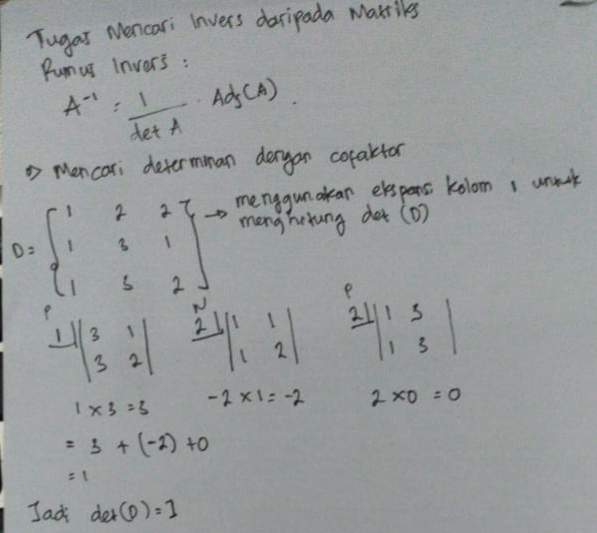 Tugas Mencari Invers daripada Matriks
Rumus Invers :
A⁻¹ = 1/det A . Adj (A) .
=> Mencari determinan dengan cofaktor
D = [ 1 2 2 ] → menggunakan ekspansi kolom 1 untuk
menghitung det (D)
1 3 1
1 3 2
P N P
1 | 3 1 | 2 | 1 1 | 2 | 1 3 |
| 3 2 | | 1 2 | | 1 3 |
1 x 3 = 3 -2 x 1 = -2 2 x 0 = 0
= 3 + (-2) + 0
= 1
Jadi det (D) = 1